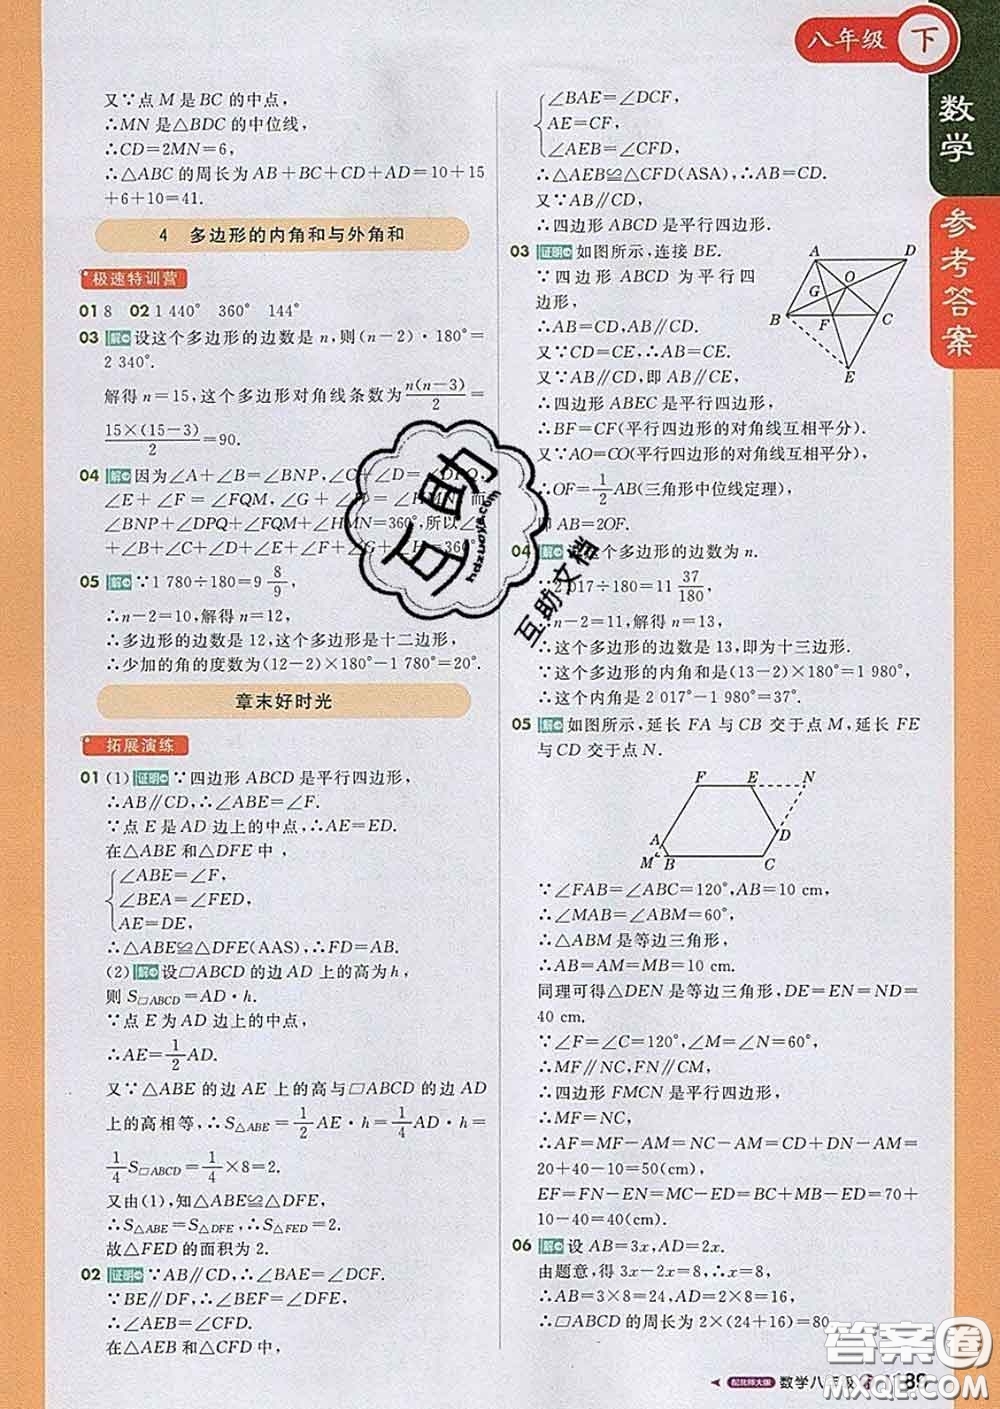 八年级 下
数学
参考答案
又∵点 M 是 BC 的中点，
∴MN 是△BDC 的中位线，
∴CD=2MN=6，
∴△ABC 的周长为 AB+BC+CD+AD=10+15
+6+10=41.
4 多边形的内角和与外角和
极速特训营
01 8 02 1 440° 360° 144°
03 解 设这个多边形的边数是 n，则(n-2)·180°=
2 340°.
解得 n=15，这个多边形对角线条数为 n(n-3)/2 =
15×(15-3)/2 =90.
04 解 因为∠A+∠B=∠BNP，∠C+∠D=∠DPQ，
∠E+∠F=∠FQM，∠G+∠H=∠HMN，而
∠BNP+∠DPQ+∠FQM+∠HMN=360°，所以∠A+
∠B+∠C+∠D+∠E+∠F+∠G+∠H=360°.
05 解 ∵1 780÷180=9 8/9，
∴n-2=10，解得 n=12，
∴多边形的边数是 12，这个多边形是十二边形，
∴少加的角的度数为(12-2)×180°-1 780°=20°.
章末好时光
拓展演练
01 (1) 证明 ∵四边形 ABCD 是平行四边形，
∴AB∥CD，∴∠ABE=∠F.
∵点 E 是 AD 边上的中点，∴AE=ED.
在△ABE 和△DFE 中，
∠ABE=∠F，
∠BEA=∠FED，
AE=DE，
∴△ABE≌△DFE(AAS)，∴FD=AB.
(2) 解 设▱ABCD 的边 AD 上的高为 h，
则 S▱ABCD=AD·h.
∵点 E 为 AD 边上的中点，
∴AE=1/2 AD.
又∵△ABE 的边 AE 上的高与▱ABCD 的边 AD
上的高相等，∴S△ABE=1/2 AE·h=1/4 AD·h=
1/4 S▱ABCD=1/4×8=2.
又由(1)，知△ABE≌△DFE，
∴S△ABE=S△DFE，∴S△FED=2.
故△FED 的面积为 2.
02 证明 ∵AB∥CD，∴∠BAE=∠DCF.
∵BE∥DF，∴∠BEF=∠DFE，
∴∠AEB=∠CFD.
在△AEB 和△CFD 中，
∠BAE=∠DCF，
AE=CF，
∠AEB=∠CFD，
∴△AEB≌△CFD(ASA)，∴AB=CD.
又∵AB∥CD，
∴四边形 ABCD 是平行四边形.
03 证明 如图所示，连接 BE.
∵四边形 ABCD 为平行四
边形，
∴AB=CD，AB∥CD.
又∵CD=CE，∴AB=CE.
又∵AB∥CD，即 AB∥CE，
∴四边形 ABEC 是平行四边形，
∴BF=CF(平行四边形的对角线互相平分).
又∵AO=CO(平行四边形的对角线互相平分)，
∴OF=1/2 AB(三角形中位线定理)，
即 AB=2OF.
A D O G B F C E
04 解 设这个多边形的边数为 n.
∵2 017÷180=11 37/180，
∴n-2=11，解得 n=13，
∴这个多边形的边数是 13，即为十三边形.
∵这个多边形的内角和是(13-2)×180°=1 980°，
∴这个内角是 2 017°-1 980°=37°.
05 解 如图所示，延长 FA 与 CB 交于点 M，延长 FE
与 CD 交于点 N.
F E N
A D
M B C
∵∠FAB=∠ABC=120°，AB=10 cm，
∴∠MAB=∠ABM=60°，
∴△ABM 是等边三角形，
∴AB=AM=MB=10 cm.
同理可得△DEN 是等边三角形，DE=EN=ND=
40 cm.
∵∠F=∠C=120°，∠M=∠N=60°，
∴MF∥NC，FN∥CM，
∴四边形 FMCN 是平行四边形，
∴MF=NC，
∴AF=MF-AM=NC-AM=CD+DN-AM=
20+40-10=50(cm)，
EF=FN-EN=MC-ED=BC+MB-ED=70+
10-40=40(cm).
06 解 设 AB=3x，AD=2x.
由题意，得 3x-2x=8，∴x=8，
∴AB=3×8=24，AD=2×8=16，
∴▱ABCD 的周长为 2×(24+16)=80.
配北师大版 数学八年级 189
互助
hdzuoye.com
互助文档
答案卷
MXQE.COM